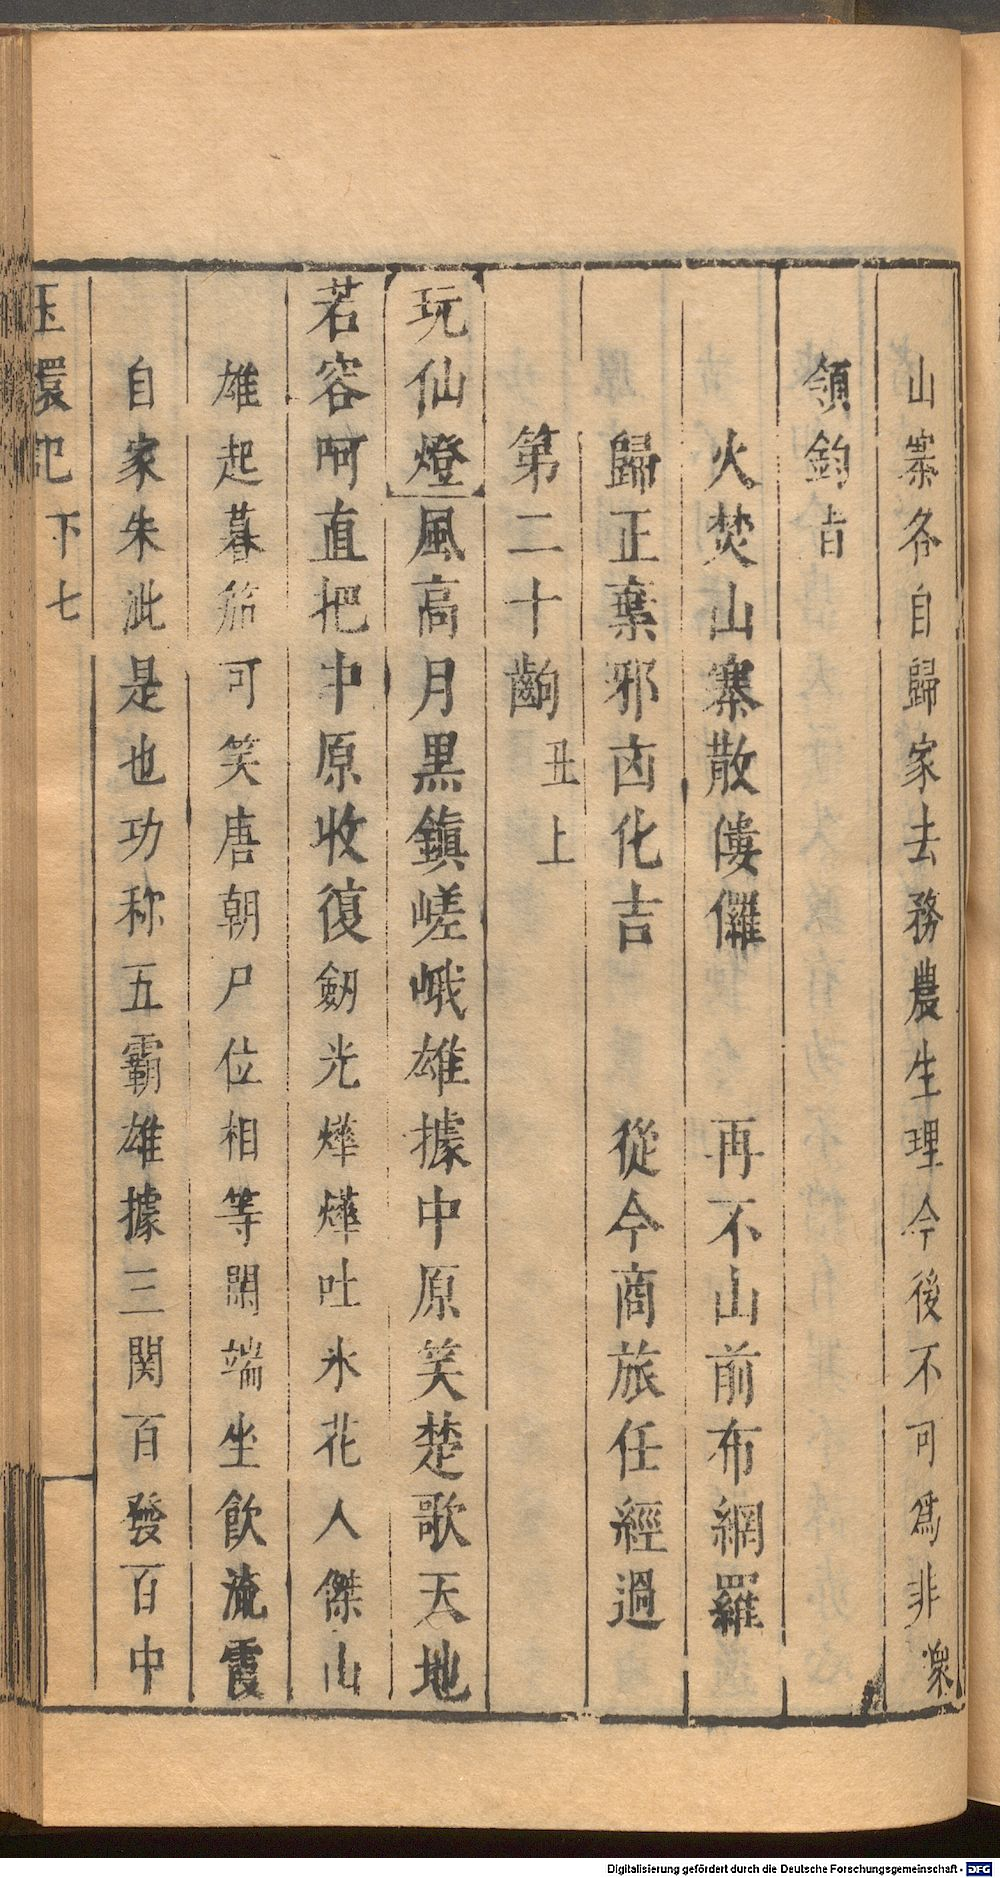 山寨各自歸家去務農生理今後不可爲非衆
領鈞旨
火焚山寨散僂儸　再不山前布網羅
歸正棄邪凶化吉　從今商旅任經過
第二十齣丑上
玩仙燈風高月黒鎮嵯峨雄據中原笑楚歌天地
若容呵直把中原收復劒光燁燁吐氷花人傑山
雄起暮笳可笑唐朝尸位相等閑端坐飲流霞
自家朱泚是也功称五霸雄據三関百發百中
玉環記　下七
Digitalisierung gefördert durch die Deutsche Forschungsgemeinschaft - DFG